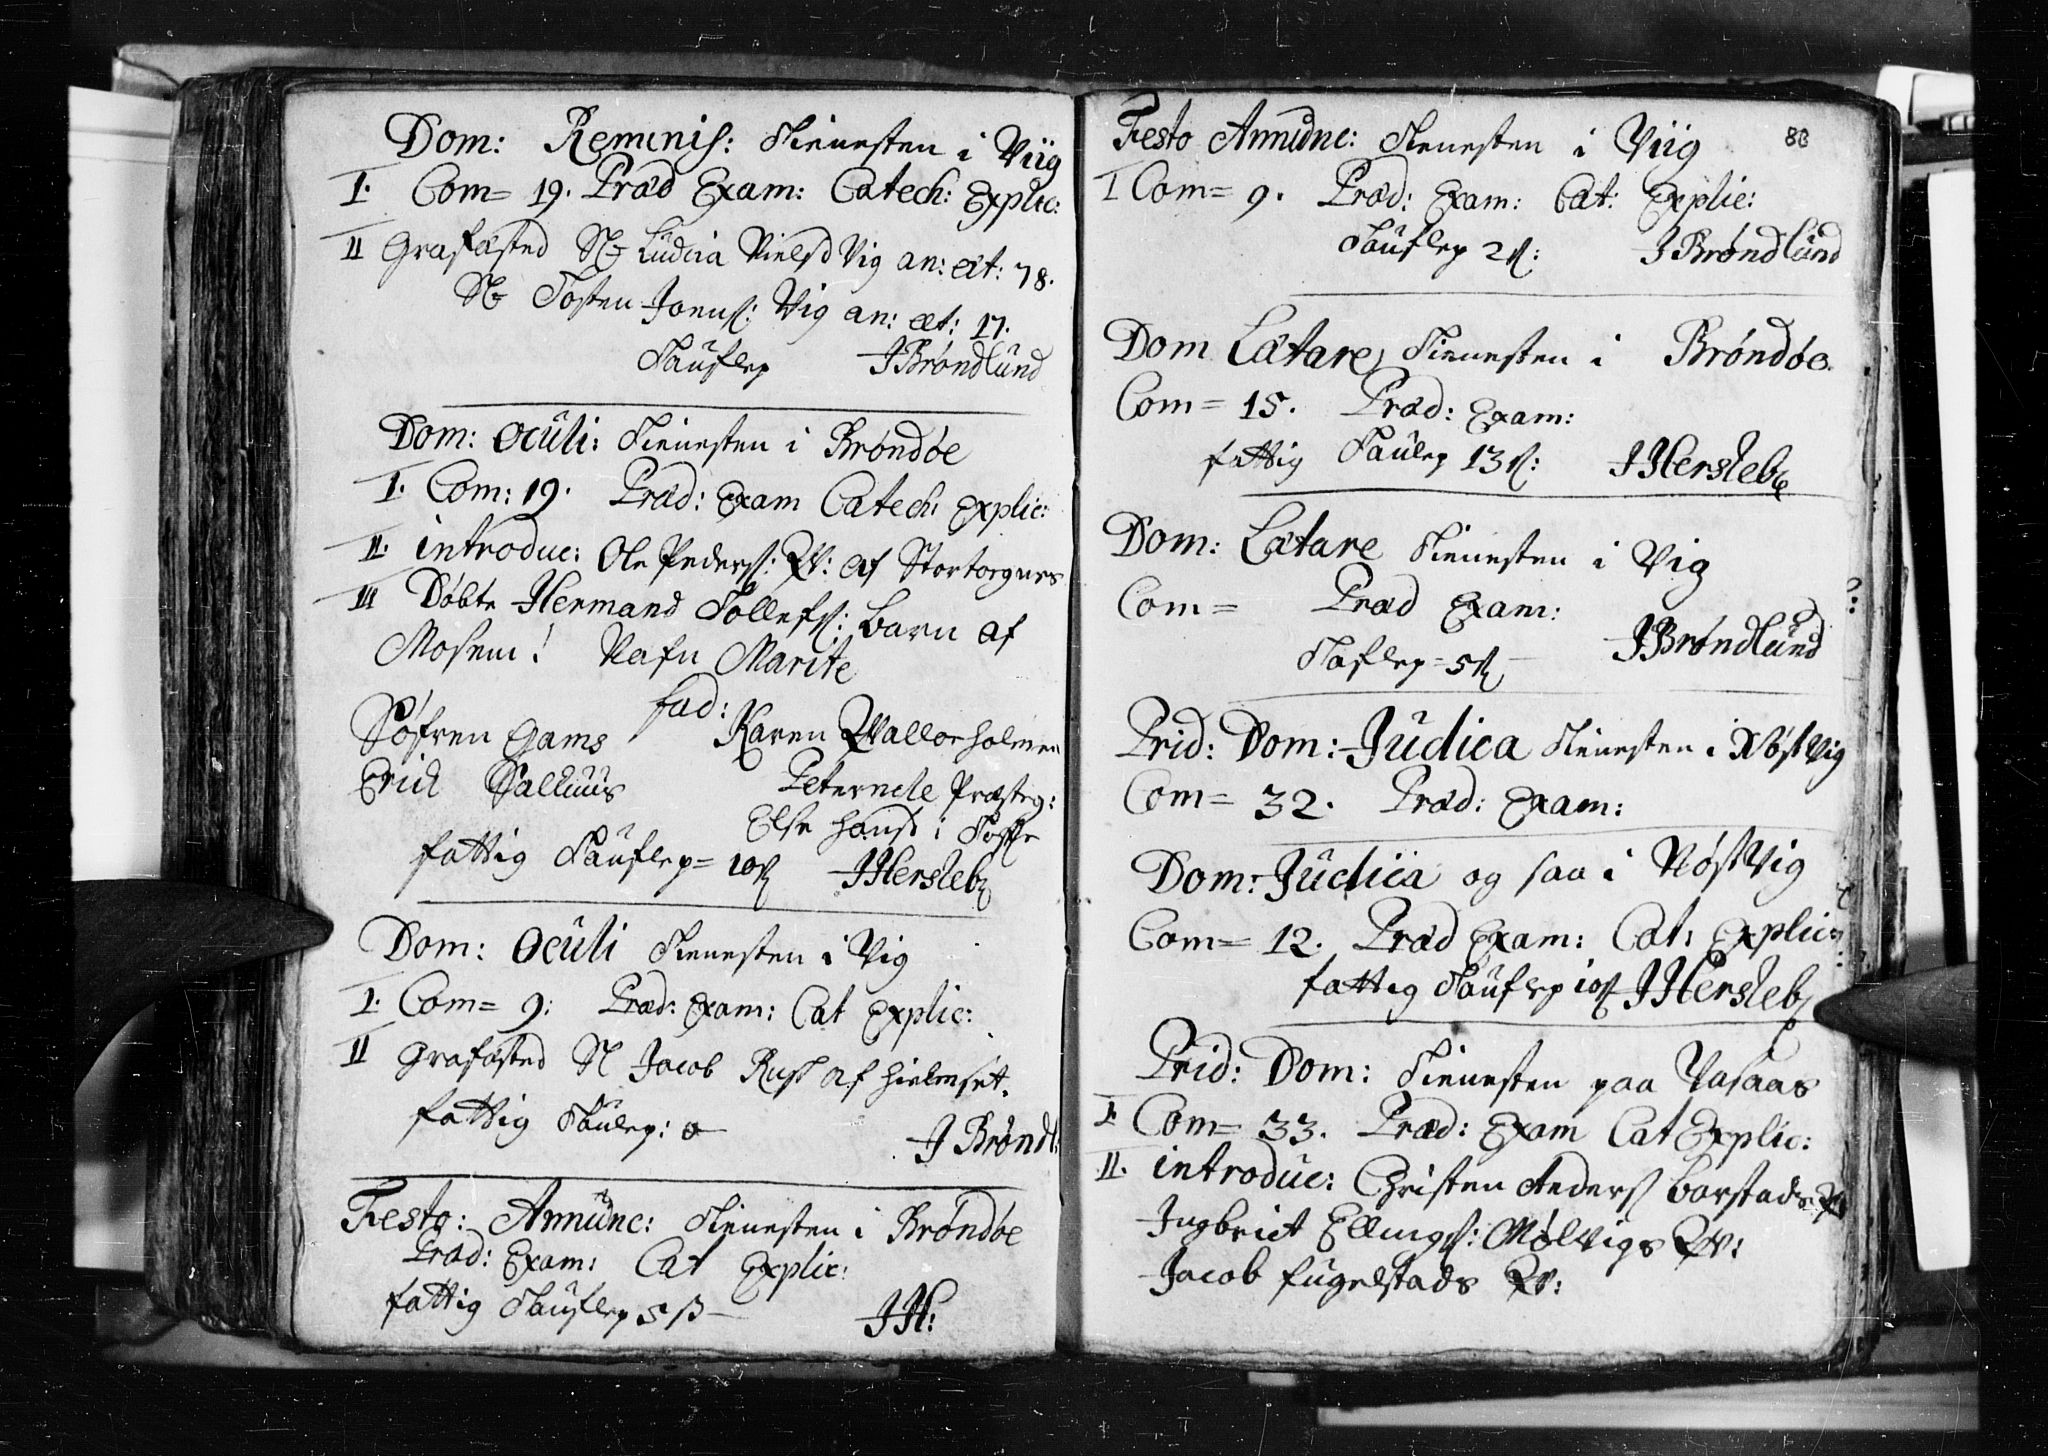 Dom: Reminis: Tienesten i Viig
I. Com= 19. Præd Exam: Catech: Explic:
II Grafæsted Sl Ludvia Nielsd Vig an: æt: 78.
Sl Tosten Joens: Vig an: æt: 17.
Tauflep JBrøndlund
Dom: Oculi: Tienesten i Brøndøe
I. Com: 19. Præd: Exam Catech: Explic:
II. introduc: Ole Peders: Qv: af Stortorgnes
III Døbte Hermand Tollefs: barn af
Mosem! Nafn Marite
fad:
Søfren Gams Karen Qvalloeholmen
Erich Peternele Præsteg:
Else Hansd i Tofte
fattig Tauflep= 10ß JHersleb
Dom: Oculi Tienesten i Vig
I. Com= 9: Præd: Exam: Cat Explic:
II Grafæsted Sl Jacob Rusk af Hielmset.
fattig Taulep: 0 J Brøndl:
Festo: Annunc: Tienesten i Brøndøe
Præd: Exam: Cat Explic:
fattig Tauflep 5ß JH:
Festo Annunc: Tienesten i Viig 88
I Com= 9. Præd: Exam: Cat: Explic:
Tauflep 2ß: JBrøndlund
Dom Lætare, Tienesten i Brøndøe
Com= 15. Præd: Exam:
fattig Taulep 13ß: JHersleb
Dom: Lætare Tienesten i Vig
Com= Præd Exam:
Taflep= 5ß JBrøndlund
Prid: Dom: Judica Tienesten i NøstVig
Com= 32. Præd: Exam:
Dom: Judica og saa i NøstVig
Com= 12. Præd Exam: Cat: Explic:
fattig Tauflep 10ß JHersleb
Prid: Dom: Tienesten paa Vasaas
I Com= 33. Præd: Exam Cat Explic:
II. introduc: Christen Anders Borstads Qv
Ingbrict Ellings: Mølvigs Qv:
Jacob Fugelstads Qv: